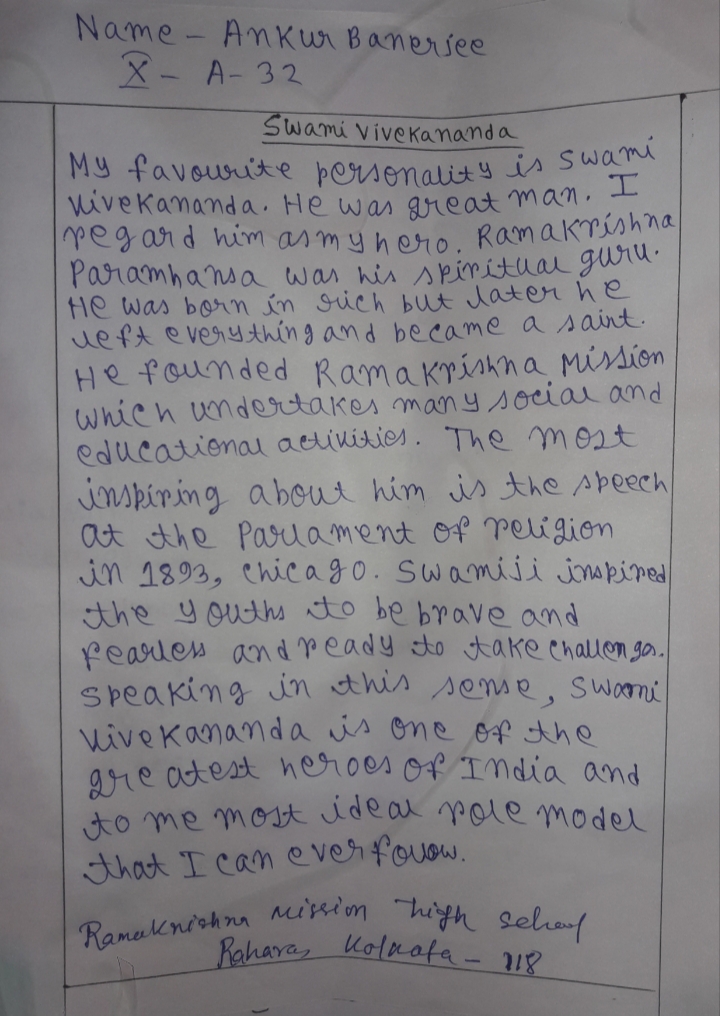 Name - Ankur Banerjee
X - A - 32
Swami Vivekananda
My favourite personality is Swami
Vivekananda. He was great man. I
regard him as my hero. Ramakrishna
Paramhansa was his spiritual guru.
He was born in rich but later he
left everything and became a saint.
He founded Ramakrishna Mission
which undertakes many social and
educational activities. The most
inspiring about him is the speech
at the Parliament of religion
in 1893, Chicago. Swamiji inspired
the youths to be brave and
fearless and ready to take challenges.
Speaking in this sense, Swami
Vivekananda is one of the
greatest heroes of India and
to me most ideal role model
that I can ever follow.
Ramakrishna Mission high school
Rahara, Kolkata - 118